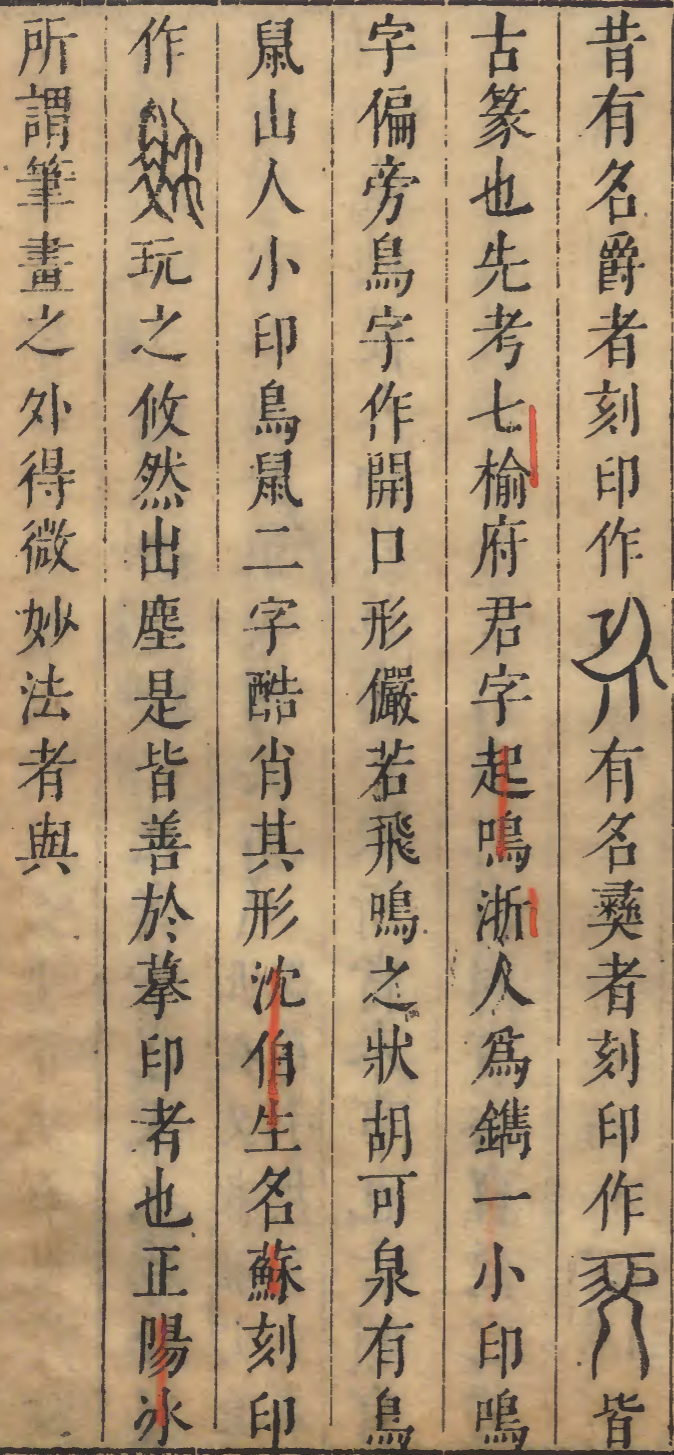 昔有名爵者刻印作有名彜者刻印作皆
古篆也先考七榆府君字起鳴浙人爲鐫一小印鳴
字偏旁鳥字作開口形儼若飛鳴之狀胡可泉有鳥
鼠山人小印鳥鼠二字酷肖其形沈伯生名蘇刻印
作玩之攸然出塵是皆善於摹印者也正陽冰
所謂筆畫之外得微妙法者與